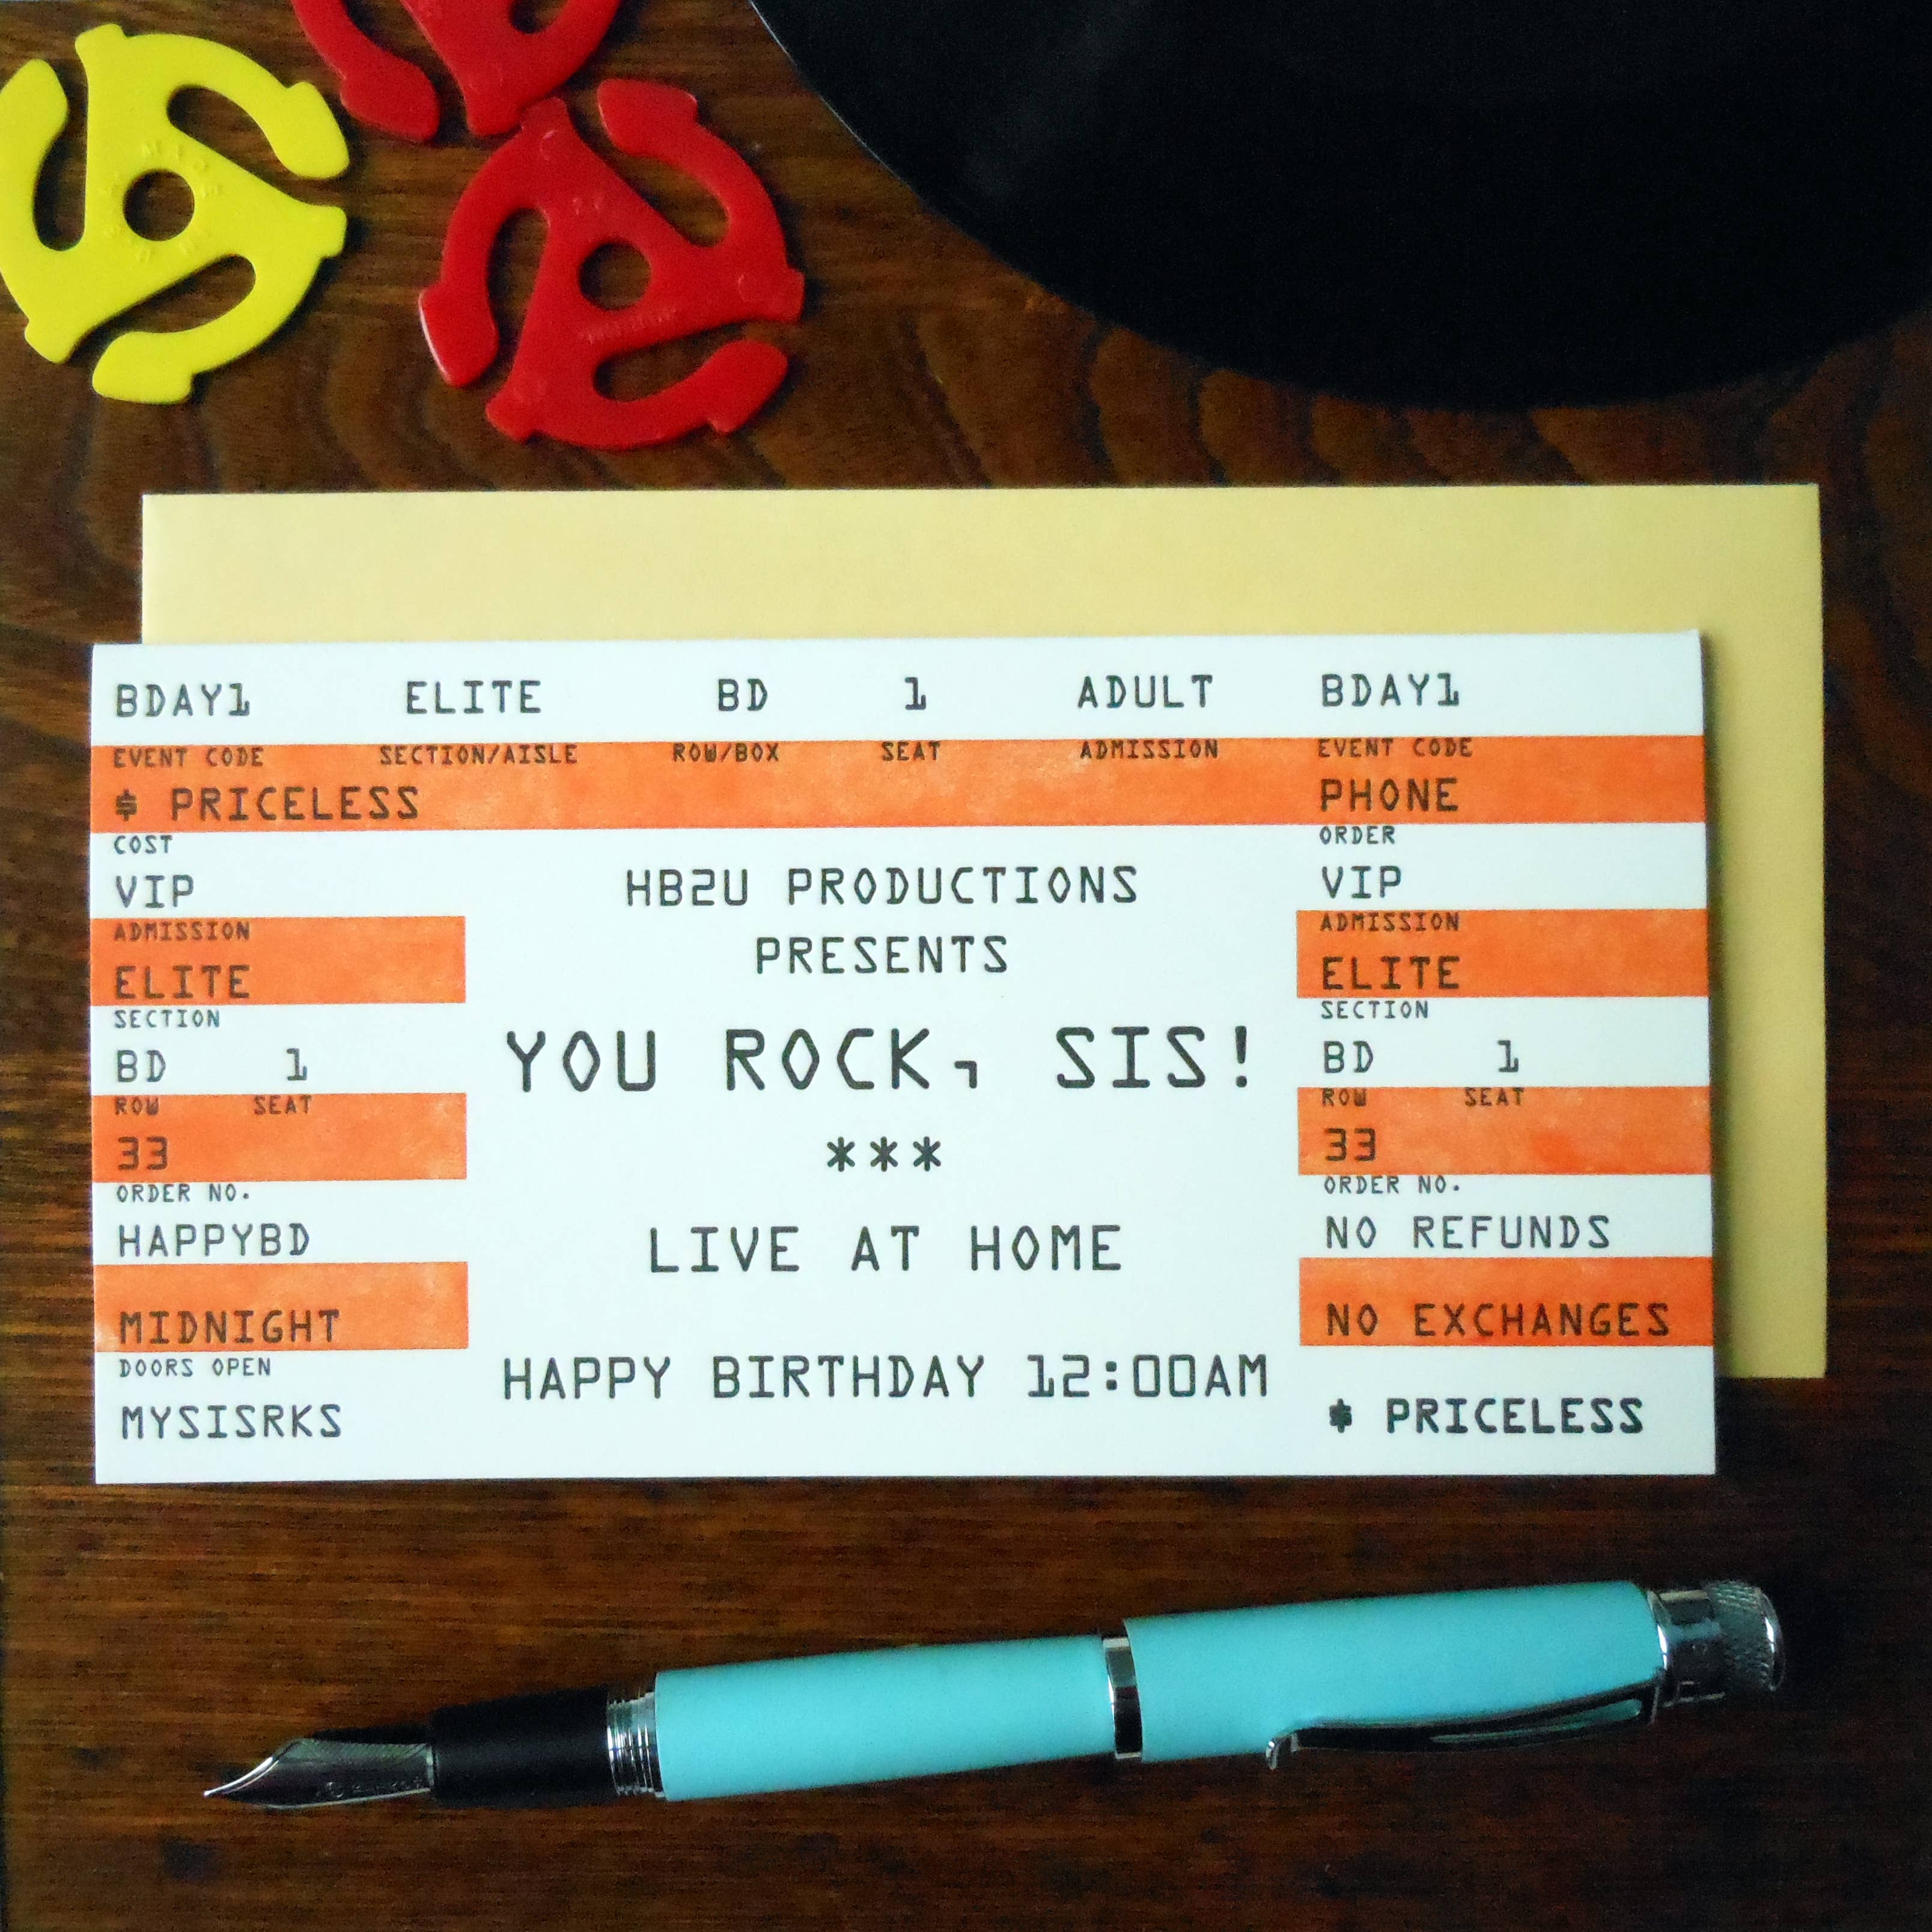 BDAY1 ELITE BD 1 ADULT BDAY1
EVENT CODE SECTION/AISLE ROW/BOX SEAT ADMISSION EVENT CODE
$ PRICELESS
COST
VIP
ADMISSION
ELITE
SECTION
BD 1
ROW SEAT
33
ORDER NO.
HAPPYBD
MIDNIGHT
DOORS OPEN
MYSISRKS
HB2U PRODUCTIONS
PRESENTS
YOU ROCK, SIS!
***
LIVE AT HOME
HAPPY BIRTHDAY 12:00AM
PHONE
ORDER
VIP
ADMISSION
ELITE
SECTION
BD 1
ROW SEAT
33
ORDER NO.
NO REFUNDS
NO EXCHANGES
$ PRICELESS